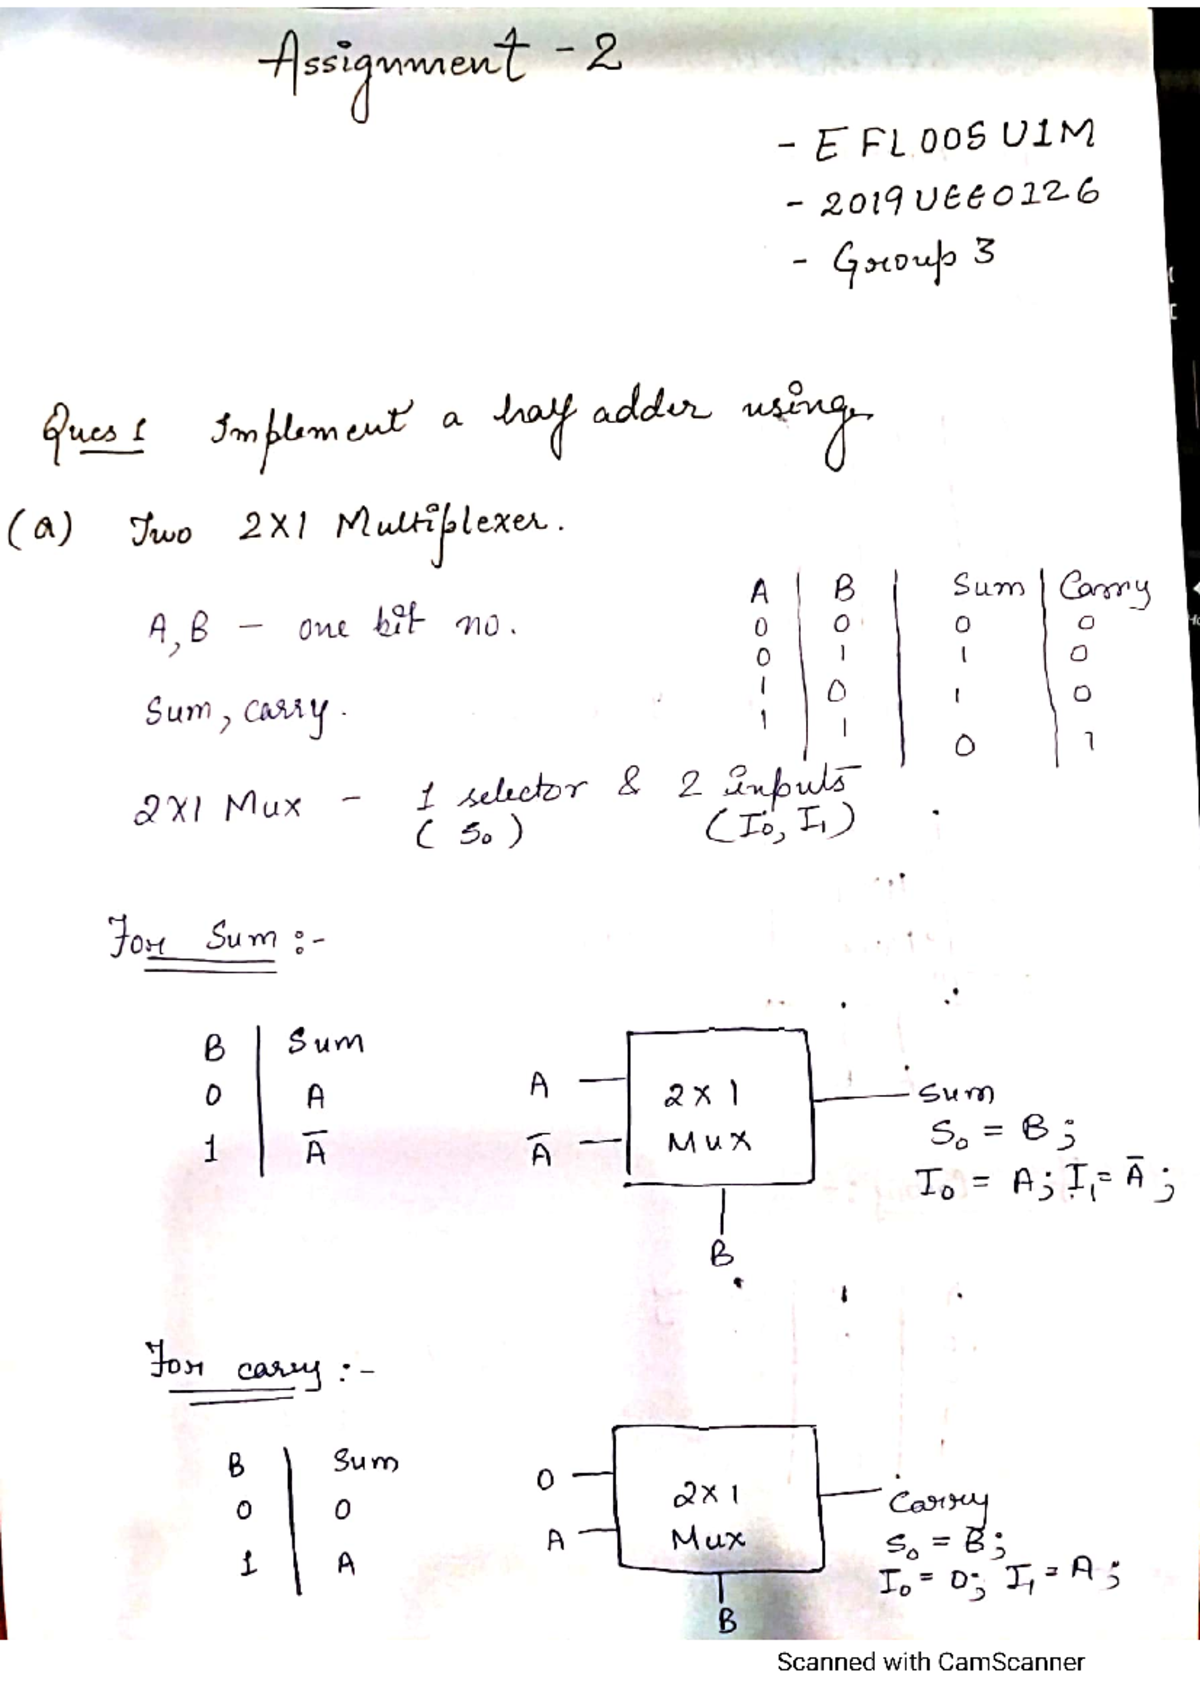 Assignment - 2
- EFLOOSU1M
- 2019UEE0126
- Group 3
Ques 1 Implement a half adder using
(a) Two 2X1 Multiplexer.
A, B - one bit no.
Sum, carry.
A | B | Sum | Carry
0 | 0 | 0 | 0
0 | 1 | 1 | 0
1 | 0 | 1 | 0
1 | 1 | 0 | 1
2X1 Mux - 1 selector & 2 inputs
(S₀) (I₀, I₁)
For Sum :-
B | Sum
0 | A
1 | A̅
A
A̅
2 X 1
Mux
B
Sum
S₀ = B;
I₀ = A; I₁ = A̅;
For carry :-
B | Sum
0 | 0
1 | A
0
A
2X1
Mux
B
Carry
S₀ = B;
I₀ = 0; I₁ = A;
Scanned with CamScanner